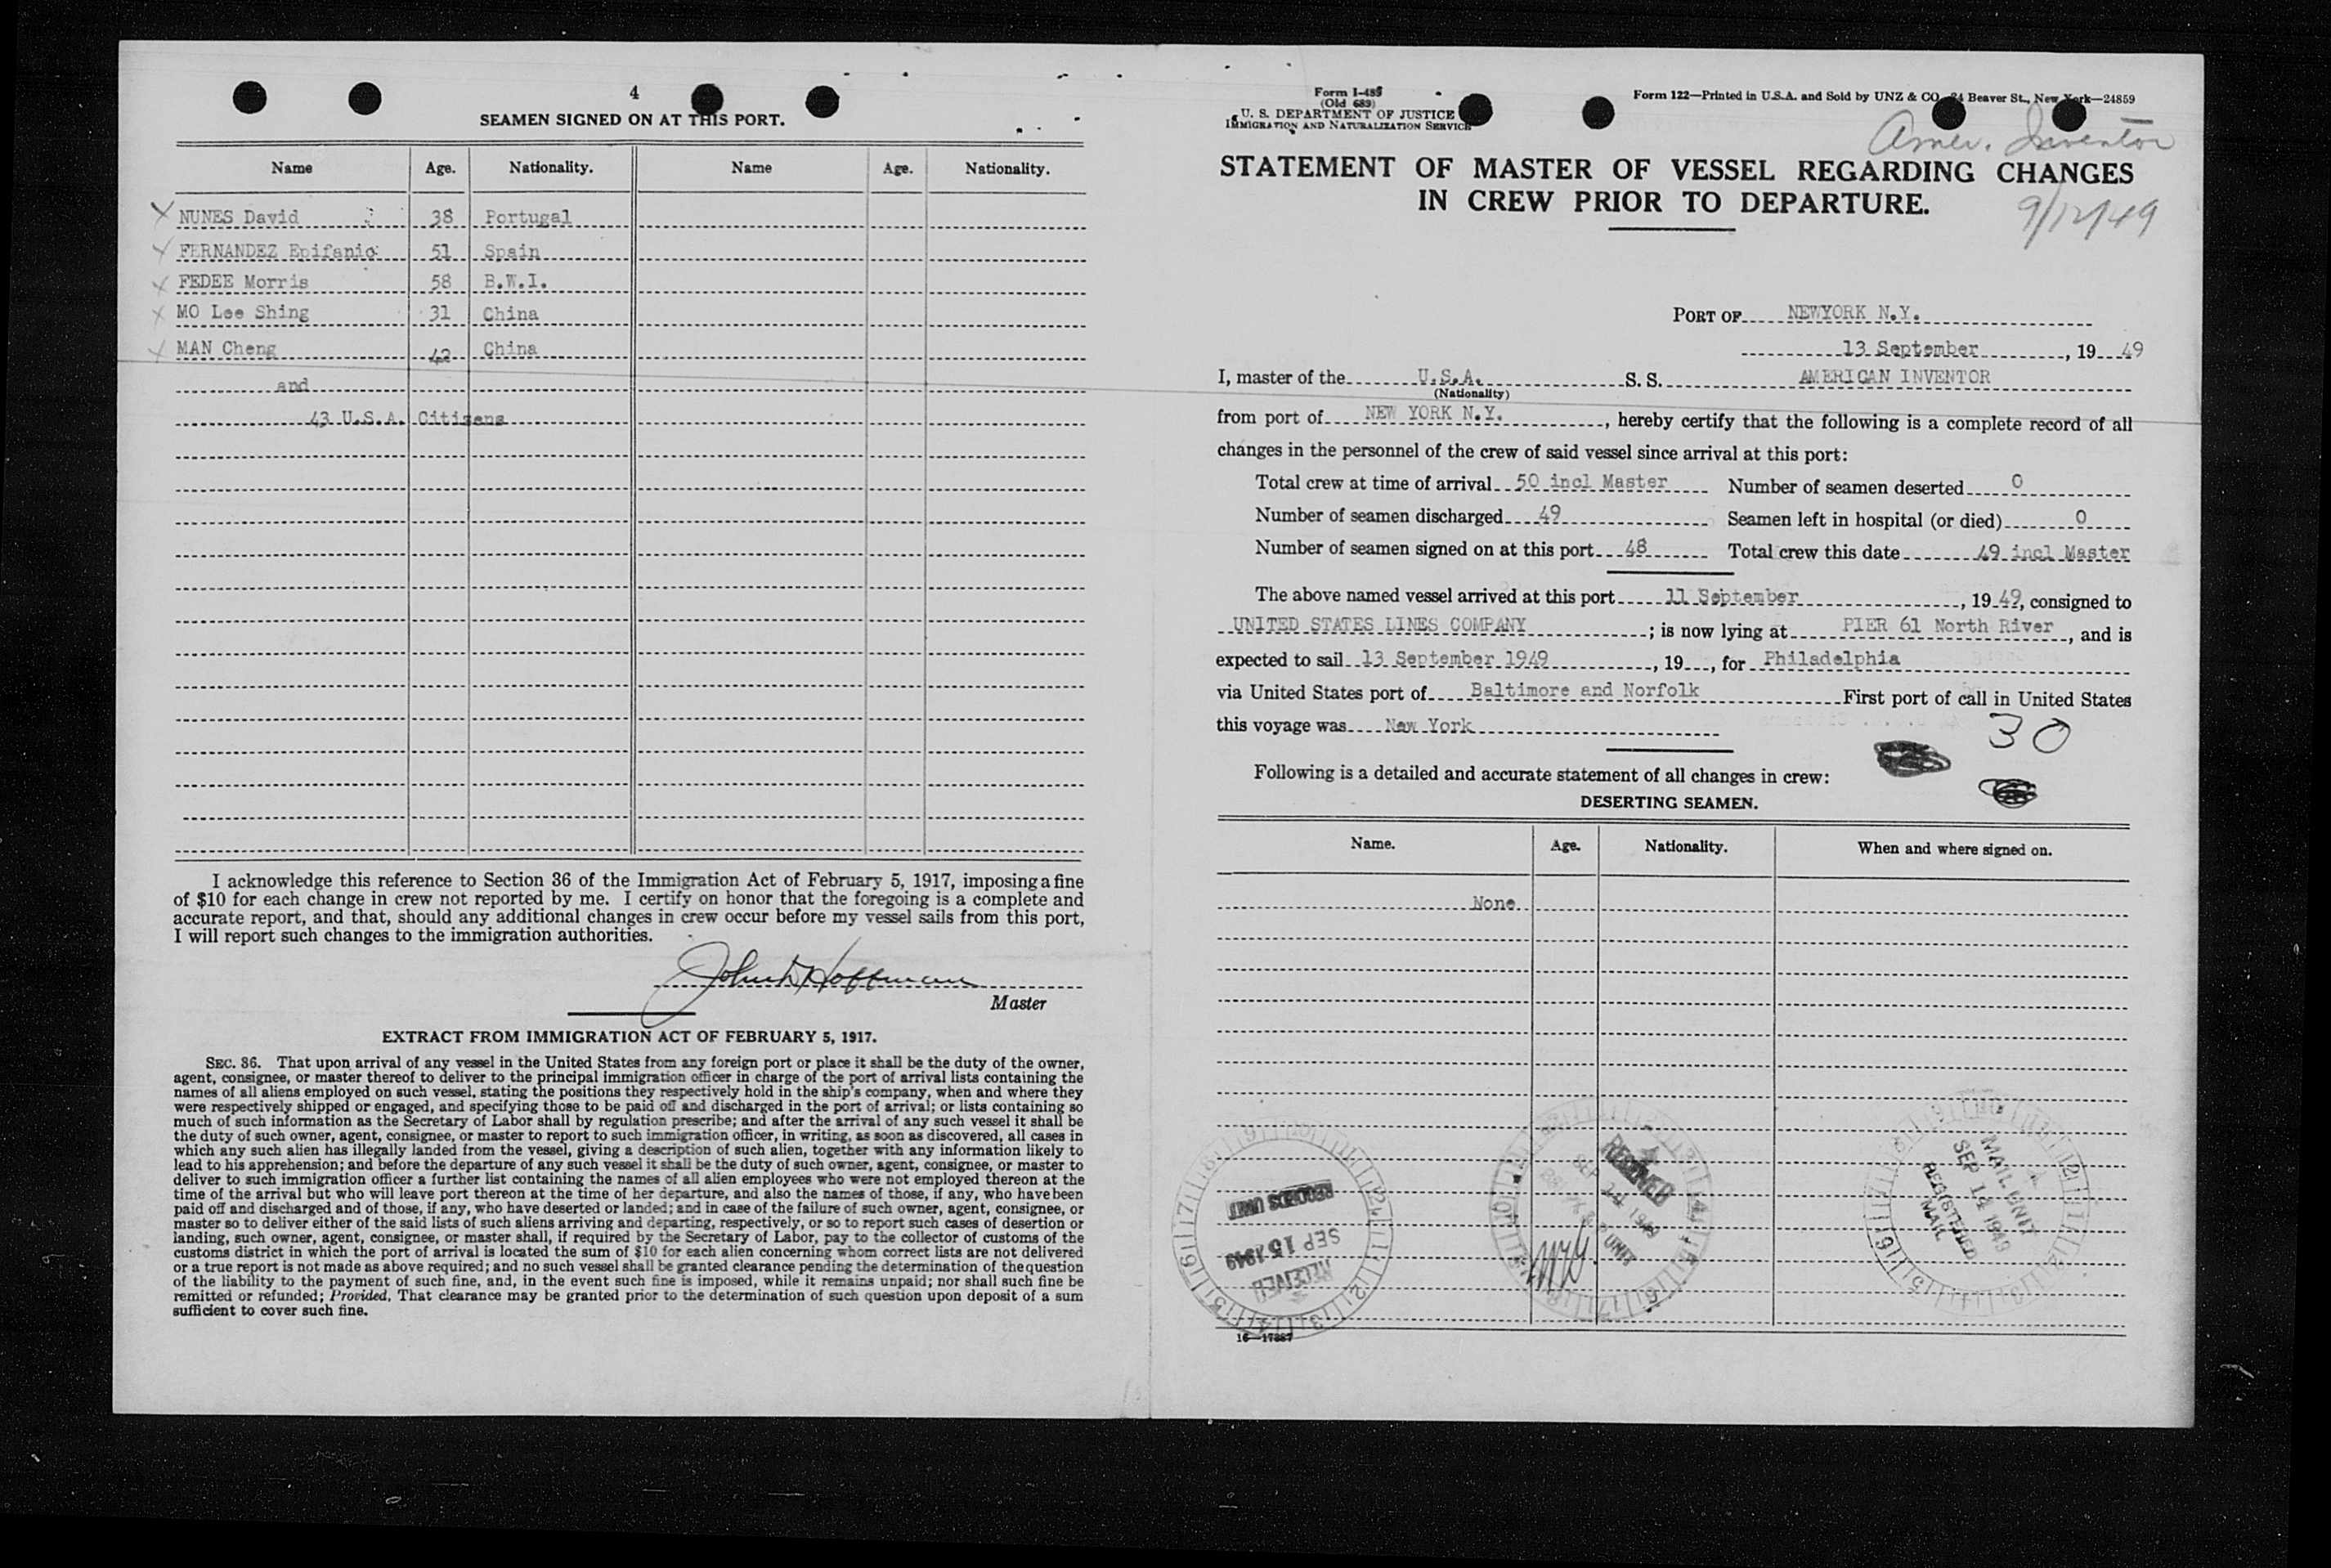 4
SEAMEN SIGNED ON AT THIS PORT.
Name Age. Nationality. Name Age. Nationality.
NUNES David 38 Portugal
FERNANDEZ Epifanio 51 Spain
FEDEE Morris 58 B.W.I.
MO Lee Shing 31 China
MAN Cheng 42 China
and
43 U.S.A. Citizens
I acknowledge this reference to Section 36 of the Immigration Act of February 5, 1917, imposing a fine
of $10 for each change in crew not reported by me. I certify on honor that the foregoing is a complete and
accurate report, and that, should any additional changes in crew occur before my vessel sails from this port,
I will report such changes to the immigration authorities.
John D Hoffman
Master
EXTRACT FROM IMMIGRATION ACT OF FEBRUARY 5, 1917.
SEC. 36. That upon arrival of any vessel in the United States from any foreign port or place it shall be the duty of the owner,
agent, consignee, or master thereof to deliver to the principal immigration officer in charge of the port of arrival lists containing the
names of all aliens employed on such vessel, stating the positions they respectively hold in the ship's company, when and where they
were respectively shipped or engaged, and specifying those to be paid off and discharged in the port of arrival; or lists containing so
much of such information as the Secretary of Labor shall by regulation prescribe; and after the arrival of any such vessel it shall be
the duty of such owner, agent, consignee, or master to report to such immigration officer, in writing, as soon as discovered, all cases in
which any such alien has illegally landed from the vessel, giving a description of such alien, together with any information likely to
lead to his apprehension; and before the departure of any such vessel it shall be the duty of such owner, agent, consignee, or master to
deliver to such immigration officer a further list containing the names of all alien employees who were not employed thereon at the
time of the arrival but who will leave port thereon at the time of her departure, and also the names of those, if any, who have been
paid off and discharged and of those, if any, who have deserted or landed; and in case of the failure of such owner, agent, consignee, or
master so to deliver either of the said lists of such aliens arriving and departing, respectively, or so to report such cases of desertion or
landing, such owner, agent, consignee, or master shall, if required by the Secretary of Labor, pay to the collector of customs of the
customs district in which the port of arrival is located the sum of $10 for each alien concerning whom correct lists are not delivered
or a true report is not made as above required; and no such vessel shall be granted clearance pending the determination of the question
of the liability to the payment of such fine, and, in the event such fine is imposed, while it remains unpaid; nor shall such fine be
remitted or refunded; Provided, That clearance may be granted prior to the determination of such question upon deposit of a sum
sufficient to cover such fine.
Form I-489
(Old 689)
U. S. DEPARTMENT OF JUSTICE
IMMIGRATION AND NATURALIZATION SERVICE
Form 122—Printed in U.S.A. and Sold by UNZ & CO. 24 Beaver St., New York—24859
Amer. Inventor
STATEMENT OF MASTER OF VESSEL REGARDING CHANGES
IN CREW PRIOR TO DEPARTURE.
9/12/49
PORT OF NEWYORK N.Y.
13 September, 19 49
I, master of the U.S.A. S. S. AMERICAN INVENTOR
(Nationality)
from port of NEW YORK N.Y., hereby certify that the following is a complete record of all
changes in the personnel of the crew of said vessel since arrival at this port:
Total crew at time of arrival 50 incl Master Number of seamen deserted 0
Number of seamen discharged 49 Seamen left in hospital (or died) 0
Number of seamen signed on at this port 48 Total crew this date 49 incl Master
The above named vessel arrived at this port 11 September, 19 49, consigned to
UNITED STATES LINES COMPANY; is now lying at PIER 61 North River, and is
expected to sail 13 September 1949, 19, for Philadelphia
via United States port of Baltimore and Norfolk First port of call in United States
this voyage was New York
30
Following is a detailed and accurate statement of all changes in crew:
DESERTING SEAMEN.
Name. Age. Nationality. When and where signed on.
None
RECORDS UNIT
SEP 15 1949
RECEIVED
RECEIVED
SEP 14 1949
UNIT
MAIL UNIT
SEP 14 1949
REGISTERED
MAIL
16—17887